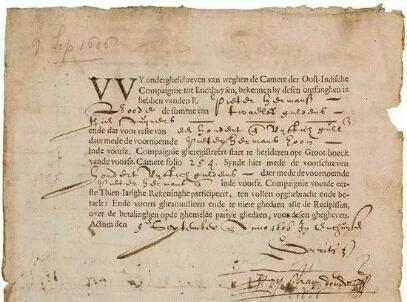 9 Sep 1606
VVY ondergheschreven van weghen de Camere der Oost-Indische
Compaignie tot Enchuysen, bekennen by desen ontfanghen te
hebben van den E. Pieter Hermansz
de somme van twaelff guldens
ende dat voor reste van hondert guld
daer mede de voornoemde Pieter Hermansz
Inde voorsz. Compaignie gheregistreert staet te herideren op't Groot-boeck
van de voorsz. Camere folio 254. Synde hier mede de voorschreven
hondert guldens daer mede de voornoemde
Pieter Hermansz inde voorsz. Compaignie voor de eer-
ste Thien-Iarighe Rekeninghe participeert, ten vollen opghebracht ende be-
taelt: Ende voorts gheannulleert ende te niete ghedaen alle de Recipissen,
over de betalinghen op de ghemelde partiye ghedaen, voor desen ghegheven.
Actum den 9 September 1606